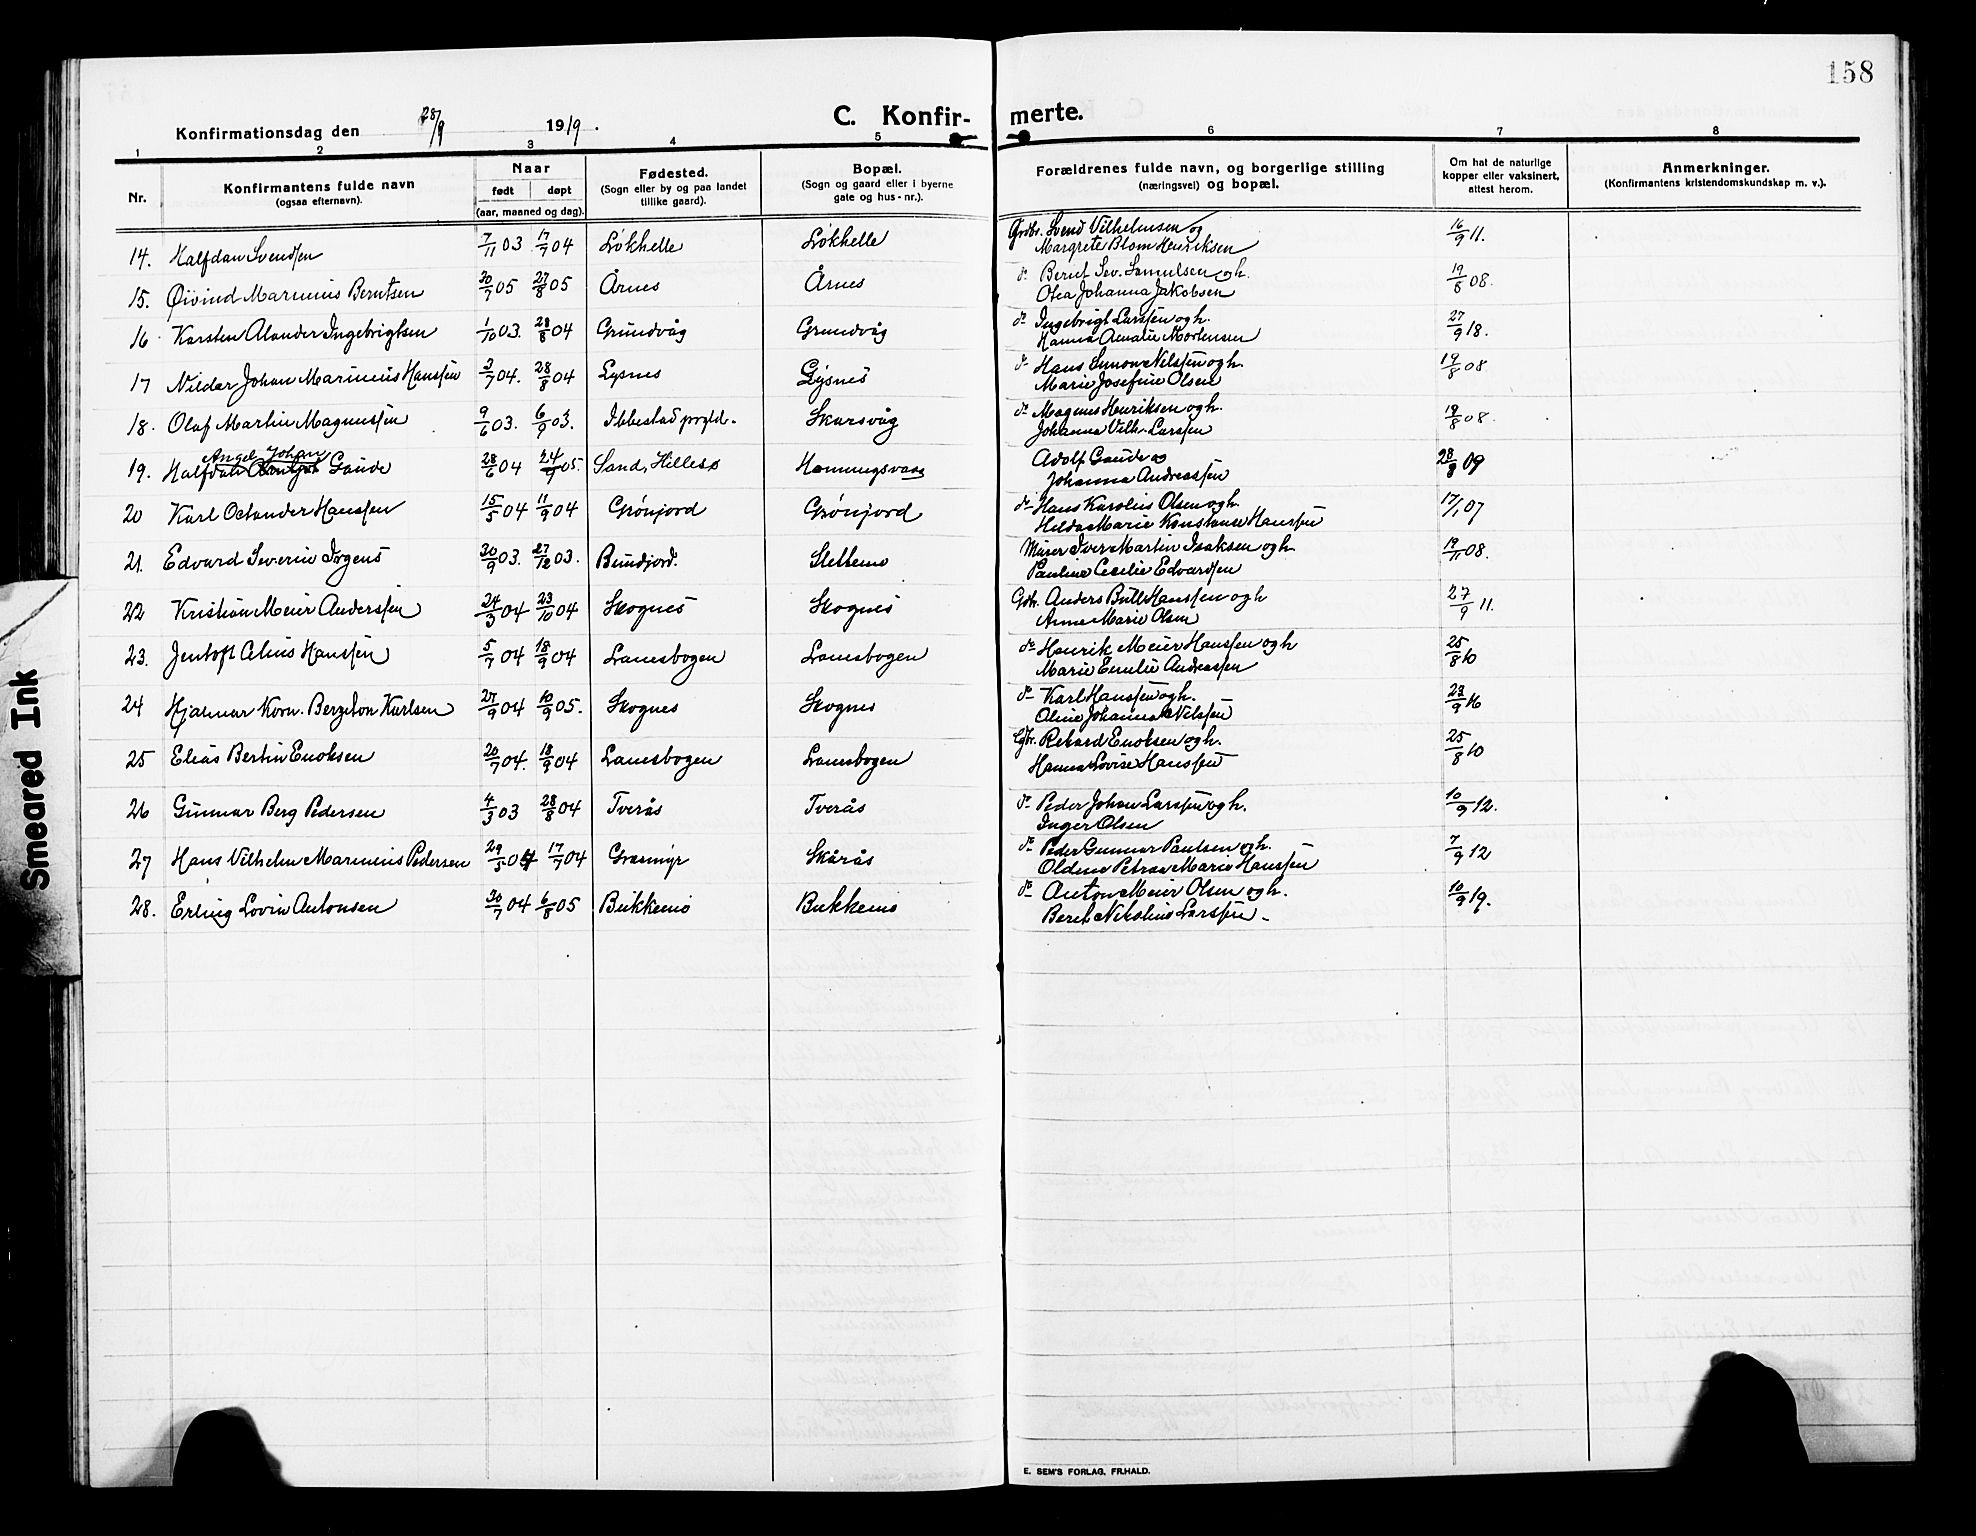 158
C. Konfir- merte.
Konfirmationsdag den 28/9 1919.
1 2 3 4 5 6 7 8
Nr. Konfirmantens fulde navn (ogsaa efternavn). Naar født døpt (aar, maaned og dag). Fødested. (Sogn eller by og paa landet tillike gaard). Bopæl. (Sogn og gaard eller i byerne gate og hus-nr.). Forældrenes fulde navn, og borgerlige stilling (næringsvei) og bopæl. Om hat de naturlige kopper eller vaksinert, attest herom. Anmerkninger. (Konfirmantens kristendomskundskap m. v.).
14. Halfdan Svendsen 7/11 03 17/7 04 Løkhelle Løkhelle Grdbr. Svend Vilhelmsen og
Margrete Blom Henriksen 16/9 11.
15. Øivind Marinius Berntsen 30/7 05 27/8 05 Årnes Årnes do Bernt Sev. Samulsen og h.
Otea Johanna Jakobsen 19/8 08.
16 Karsten Alander Ingebrigtsen 1/10 03. 28/8 04 Grundvåg Grundvåg do Ingebrigt Larssen og h.
Hanna Amalie Mortensen 27/9 18.
17 Nildar Johan Marinius Hanssen 3/7 04. 28/8 04 Lysnes Lysnes do Hans Simon Nilssen og h.
Marie Josefine Olsen 19/8 08
18. Olaf Martin Magnussen 9/6 03. 6/9 03. Ibbestad prgld. Skarsvåg do Magnus Henriksen og h.
Johanna Vilh. Larssen 19/8 08.
Angel Johan
19. Halfdan Gaude 28/6 04 24/9 05. Sand, Hillesø Honningsvaag Adolf Gaude og
Johanna Andreassen 28/8 09
20 Karl Octander Hanssen 15/5 04 11/9 04 Grønjord Grønjord do Hans Karolius Olsen og h.
Hilda Marie Konstanse Hanssen 17/1 07
21. Edvard Severin Irgens 30/9 03. 27/12 03. Bundjord. Slettemo Murer Iver Martin Isaksen og h.
Pauline Cecilie Edvardsen 19/11 08.
22 Kristian Meier Anderssen 24/3 04 23/10 04 Skognes Skognes Gdbr. Anders Bull Hanssen og h
Anne Marie Olsen 27/9 11.
23. Jentoft Alius Hanssen 5/7 04 18/9 04 Lanesbogen Lanesbogen do Henrik Meier Hanssen og h
Marie Emilie Andreassen 25/8 10
24 Hjalmar Korn. Bergeton Karlsen 27/9 04 10/9 05. Skognes Skognes do Karl Hanssen og h.
Oline Johanna Nilssen 23/9 16
25 Elias Bertin Enoksen 20/7 04. 18/9 04 Lanesbogen Lanesbogen Gbr. Rikard Enoksen og h.
Hanna Lovise Hanssen 25/8 10
26 Gunnar Berg Pedersen 4/3 03 28/8 04 Tverås Tverås do Peder Johan Larssen og h.
Inger Olsen 10/9 12.
27 Hans Vilhelm Marinius Pedersen 29/5 04 17/7 04 Græsmyr Skårås do Peder Gunnar Paulsen og h.
Oldine Petrea Marie Hanssen 7/9 12
28. Erling Lovin Antonsen 30/7 04 6/8 05 Bukkemo Bukkemo do Anton Meier Olsen og h.
Beret Nikoline Larssen 10/9 19.
E. SEM'S FORLAG, FR.HALD.
Smeared Ink